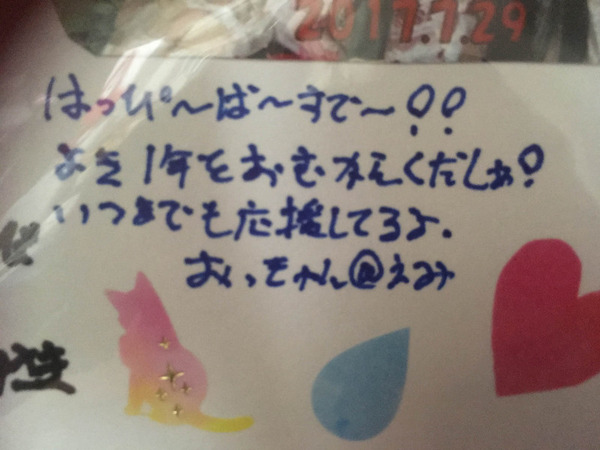 2017.7.29
はっぴ〜ば〜すで〜!!
よき1年をおむかえくだしぁ!
いつまでも応援してるよ.
おっちゃん@えみ